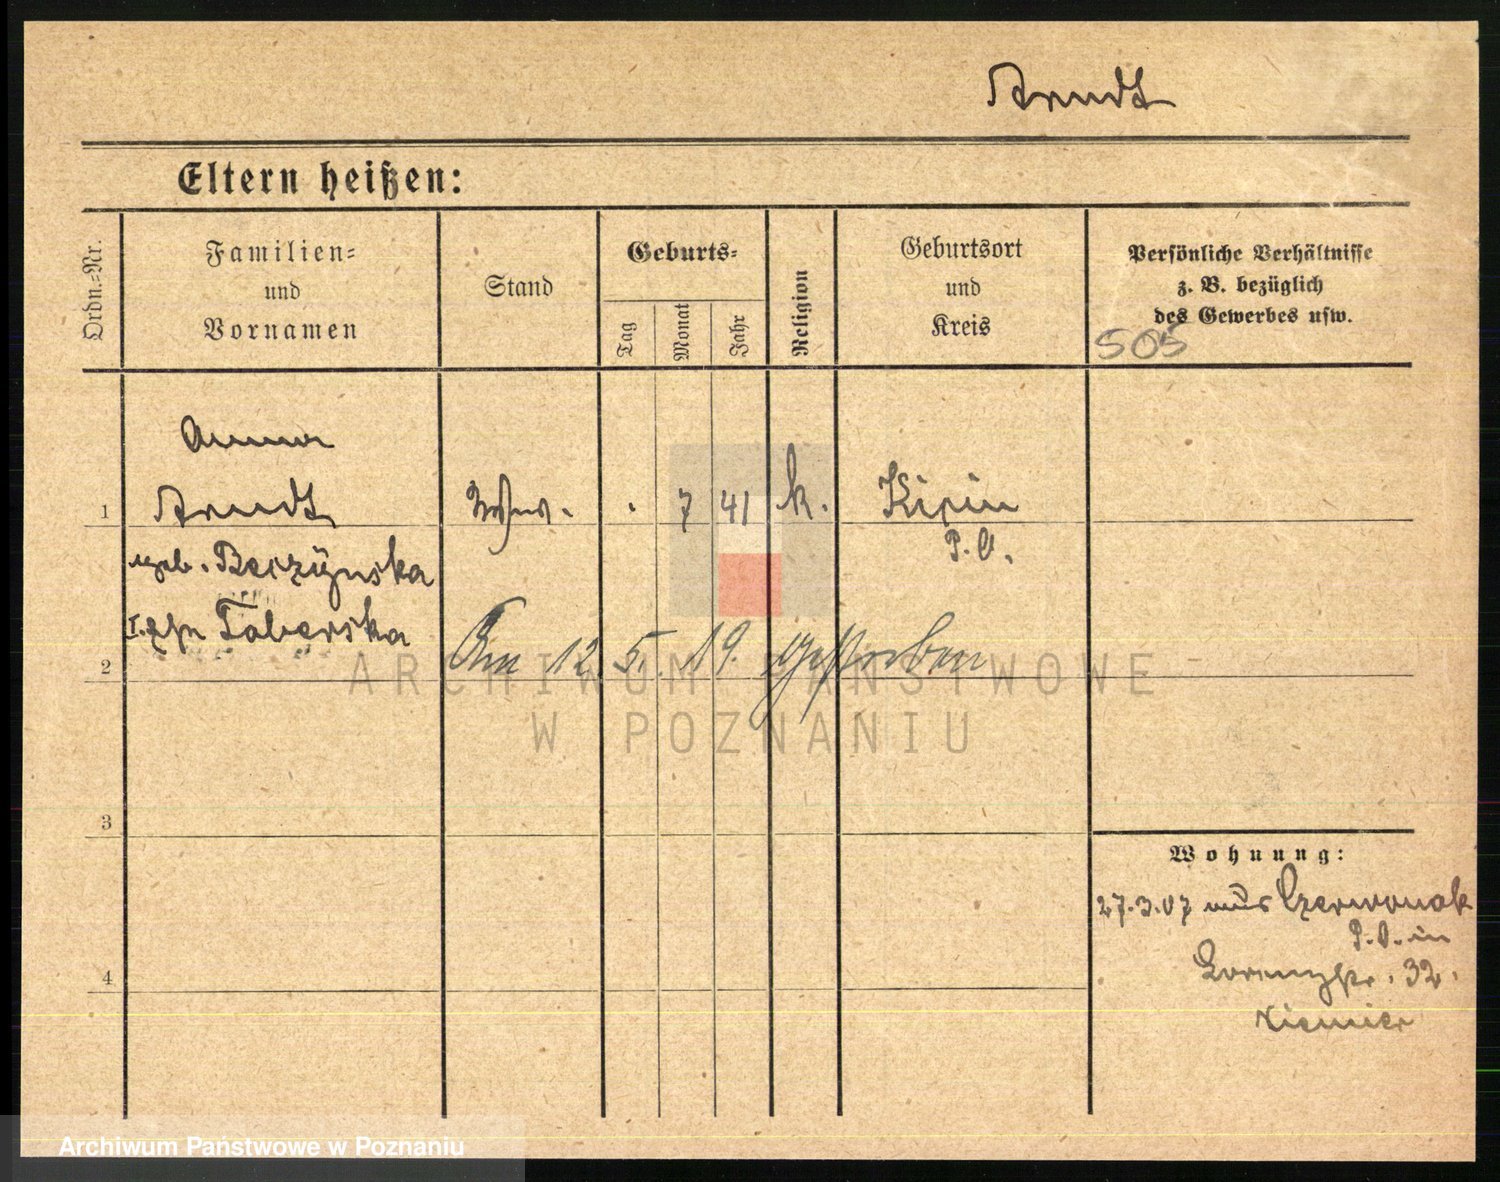 Arndt
Eltern heißen:
Ordn.=Nr.
Familien=
und
Vornamen
Stand
Geburts=
Tag
Monat
Jahr
Religion
Geburtsort
und
Kreis
Persönliche Verhältnisse
z. B. bezüglich
des Gewerbes usw.
505
Anna
1 Arndt . 7 41 k.
P. O.
geb. Berzÿnska
I. Ehe Taberska
2 Am 12. 5. 19. gestorben
ARCHIWUM PAŃSTWOWE
W POZNANIU
3
Wohnung:
27.3.07 aus Czerwonak
P. O. in
4 32.
Archiwum Państwowe w Poznaniu